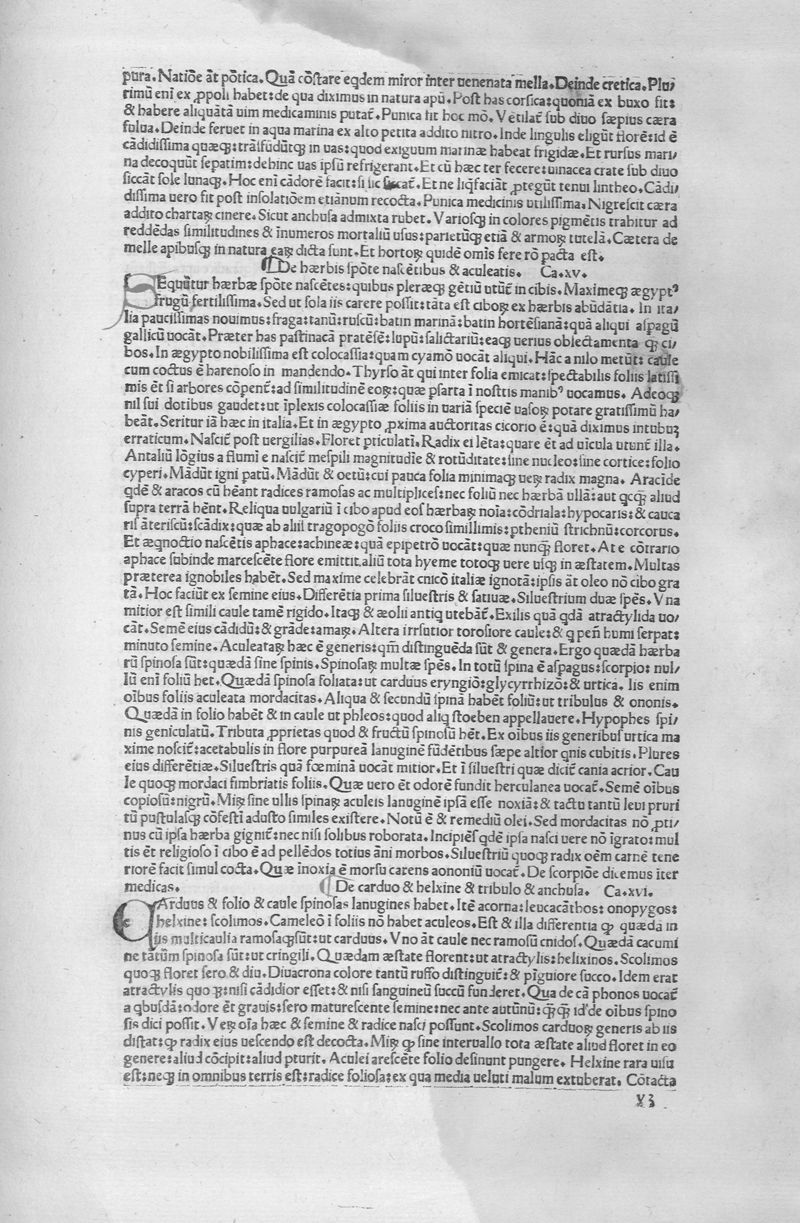 pura. Natiōe āt pōtica. Quā cōstare eqdem miror inter uenenata mella. Deinde cretica. Plu/
rimū eni ex ꝓpoli habet: de qua diximus in natura apū. Post has corsica: quoniā ex buxo fit:
& habere aliquātā uim medicaminis putat̄. Punica fit hoc mō. Vētilat̄ sub diuo sæpius cæra
fulua. Deinde feruet in aqua marina ex alto petita addito nitro. Inde lingulis eligūt florē: id ē
cādidissima quæqꝫ: trāsfūdūtqꝫ in uas: quod exiguum marinæ habeat frigidæ. Et rursus mari/
na decoquūt sepatim: dehinc uas ipsū refrigerant. Et cū hæc ter fecere: uinacea crate sub diuo
siccāt sole lunaqꝫ. Hoc eni cādorē facit: si sic siccat̄. Et ne liqfaciāt ꝓtegūt tenui lintheo. Cādi/
dissima uero fit post insolatiōem etiānum recocta. Punica medicinis utilissima. Nigrescit cæra
addito chartaꝝ cinere. Sicut anchusa admixta rubet. Variosqꝫ in colores pigmētis trahitur ad
reddēdas similitudines & īnumeros mortaliū usus: parietūqꝫ etiā & armoꝝ tutelā. Cætera de
melle apibusqꝫ in natura eaꝝ dicta sunt. Et hortoꝝ quidē omis fere rō pacta est.
De hærbis spōte nascētibus & aculeatis. Ca. xv.
SEquūtur hærbæ spōte nascētes: quibus pleræqꝫ gētiū utūt̄ in cibis. Maximeqꝫ ægyptꝰ
frugū fertilissima. Sed ut sola iis carere possit: tāta est ciboꝝ ex hærbis abūdātia. In ita/
lia paucissimas nouimus: fraga: tanū: ruscū: batin marinā: batin hortēsianā: quā aliqui aspagū
gallicū uocāt. Præter has pastinacā pratēsē: lupū: salictariū: eaqꝫ uerius oblectamenta qꝫ ci/
bos. In ægypto nobilissima est colocassia: quam cyamō uocāt aliqui. Hāc a nilo metūt: caule
cum coctus ē harenoso in mandendo. Thyrso āt qui inter folia emicat: spectabilis foliis latissi
mis ēt si arbores cōpent̄: ad similitudinē eoꝝ: quæ psarta ī nostris manibꝰ uocamus. Adeoqꝫ
nil sui dotibus gaudet: ut īplexis colocassiæ foliis in uariā speciē uasoꝝ potare gratissimū ha/
beāt. Seritur iā hæc in italia. Et in ægypto ꝓxima auctoritas cicorio ē: quā diximus intubuꝫ
erraticum. Nascit̄ post uergilias. Floret pticulatī. Radix ei lēta: quare ēt ad uīcula utunt̄ illa.
Antaliū lōgius a flumī e nascit̄ mespili magnitudīe & rotūditate: sine nucleo: sine cortice: folio
cyperi. Mādūt igni patū. Mādūt & oetū: cui pauca folia minimaqꝫ ueꝝ radix magna. Aracide
qdē & aracos cū hēant radices ramosas ac multiplices: nec foliū nec hærbā ullā: aut qcqꝫ aliud
supra terrā hēnt. Reliqua uulgariū ī cibo apud eos hærbaꝝ noīa: cōdriala: hypocaris: & cauca
ris āteriscū: scādix: quæ ab alīi tragopogō foliis croco simillimis: ptheniū strichnū: corcorus.
Et æqnoctio nascētis aphace: achineæ: quā epipetrō uocāt: quæ nunqꝫ floret. At e cōtrario
aphace subinde marcescēte flore emittit aliū tota hyeme totoqꝫ uere usqꝫ in æstatem. Multas
præterea ignobiles habēt. Sed maxime celebrāt cnicō italiæ ignotā: ipsis āt oleo nō cibo gra
tā. Hoc faciūt ex semine eius. Differētia prima siluestris & satiuæ. Siluestrium duæ spēs. Vna
mitior est simili caule tamē rigido. Itaqꝫ & æolii antiq utebāt̄. Exilis quā qdā atractylida uo/
cāt. Semē eius cādidū: & grāde: amaꝝ. Altera irrsutior torosiore caule: & q penˀ humi serpat:
minuto semine. Aculeataꝝ hæc ē generis: qm̄ distinguēda sūt & genera. Ergo quædā hærba
rū spinosa sūt: quædā sine spinis. Spinosaꝝ multæ spēs. In totū spina ē aspagus: scorpio: nul/
lū eni foliū hēt. Quædā spinosa foliata: ut carduus eryngiō: glycyrrhizō: & urtica. Iis enim
oībus foliis aculeata mordacitas. Aliqua & secundū spinā habēt foliū: ut tribulus & ononis.
Quædā in folio habēt & in caule ut phleos: quod aliq stoeben appellauere. Hypophes spi/
nis geniculatū. Tributa ꝓprietas quod & fructū spinosū hēt. Ex oībus iis generibus urtica ma
xime noscit̄: acetabulis in flore purpureā lanuginē fūdētibus sæpe altior qnis cubitis. Plures
eius differētiæ. Siluestris quā fœminā uocāt mitior. Et ī siluestri quæ dicit̄ cania acrior. Cau
le quoqꝫ mordaci fimbriatis foliis. Quæ uero ēt odorē fundit herculanea uocat̄. Semē oībus
copiosū: nigrū. Miꝝ sine ullis spinaꝝ aculeis lanuginē ipsā esse noxiā: & tactu tantū leui pruri
tū pustulasqꝫ cōfestī adusto similes existere. Notū ē & remediū olei. Sed mordacitas nō ꝓti/
nus cū ipsa hærba gignit̄: nec nisi solibus roborata. Incipiēs qdē ipsa nasci uere nō īgrato: mul
tis ēt religioso ī cibo ē ad pellēdos totius āni morbos. Siluestriū quoqꝫ radix oēm carnē tene
riorē facit simul cocta. Quæ īnoxia ē morsu carens aononiū uocat̄. De scorpiōe dicemus iter
medicas. De carduo & helxine & tribulo & anchusa. Ca. xvi.
CArduus & folio & caule spinosas lanugines habet. Itē acorna: leucacāthos: onopygos:
helxine: scolimos. Cameleō ī foliis nō habet aculeos. Est & illa differentia qꝫ quædā in
iis multicaulia ramosaqꝫ sūt: ut carduus. Vno āt caule nec ramosū cnidos. Quædā cacumi
ne tātum spinosa sūt: ut eringili. Quædam æstate florent: ut atractylis: helixinos. Scolimos
quoqꝫ floret sero & diu. Diuacrona colore tantū ruffo distinguit̄: & pīguiore succo. Idem erat
atractylis quoqꝫ: nisi cādidior esset: & nisi sanguineū succū funderet. Qua de cā phonos uocat̄
a qbusdā: odore ēt grauis: sero maturescente semine: nec ante autūnū: qꝫqꝫ id de oībus spino
sis dici possit. Veꝝ oīa hæc & semine & radice nasci possunt. Scolimos carduoꝝ generis ab iis
distat: qꝫ radix eius uescendo est decocta. Miꝝ qꝫ sine interuallo tota æstate aliud floret in eo
genere: aliud cōcipit: aliud pturit. Aculei arescēte folio desinunt pungere. Helxine rara uisu
est: neqꝫ in omnibus terris est: radice foliosa: ex qua media ueluti malum extuberat. Cōtacta
y3